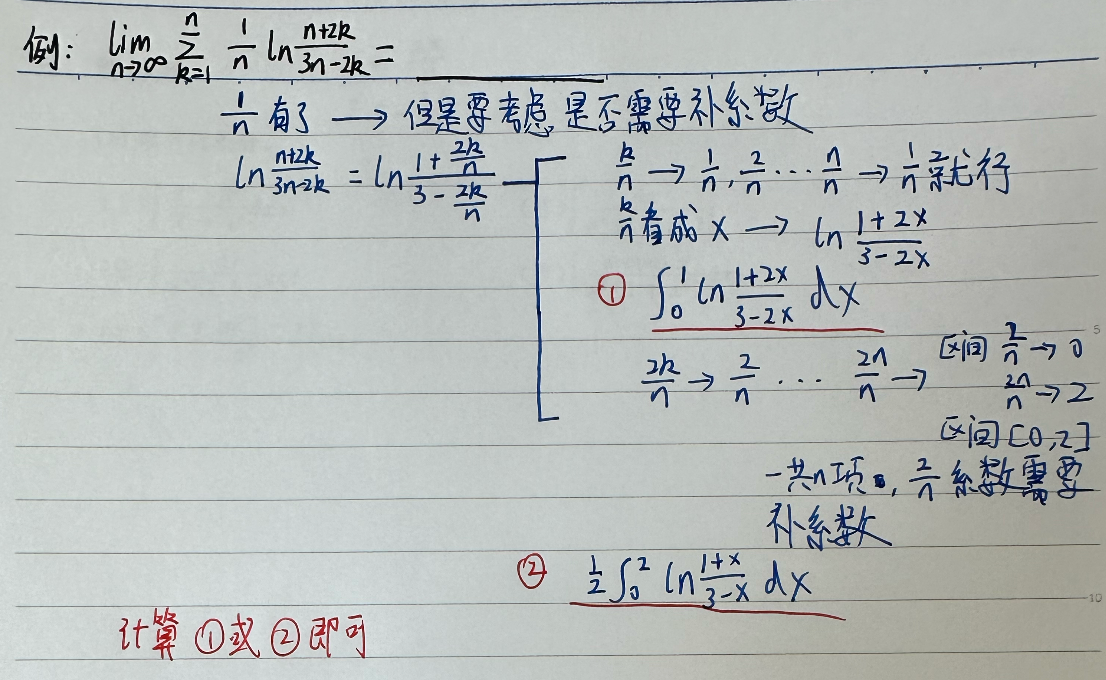 例: lim n→∞ Σ k=1 n 1/n ln (n+2k)/(3n-2k) = ______
1/n 有了 → 但是要考虑是否需要补系数
ln (n+2k)/(3n-2k) = ln (1+2k/n)/(3-2k/n)
k/n → 1/n, 2/n ⋯ n/n → 1/n 就行
k/n 看成 x → ln (1+2x)/(3-2x)
① ∫₀¹ ln (1+2x)/(3-2x) dx
2k/n → 2/n ⋯ 2n/n → 区间 2/n → 0
2n/n → 2
区间 [0,2]
一共n项, 2/n 系数需要
补系数
② 1/2 ∫₀² ln (1+x)/(3-x) dx
计算 ① 或 ② 即可
5
10